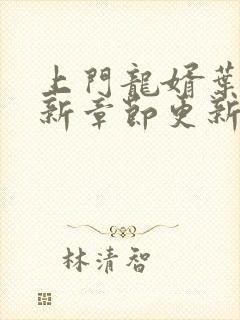 上門龍婿葉
新章節更新
林清智